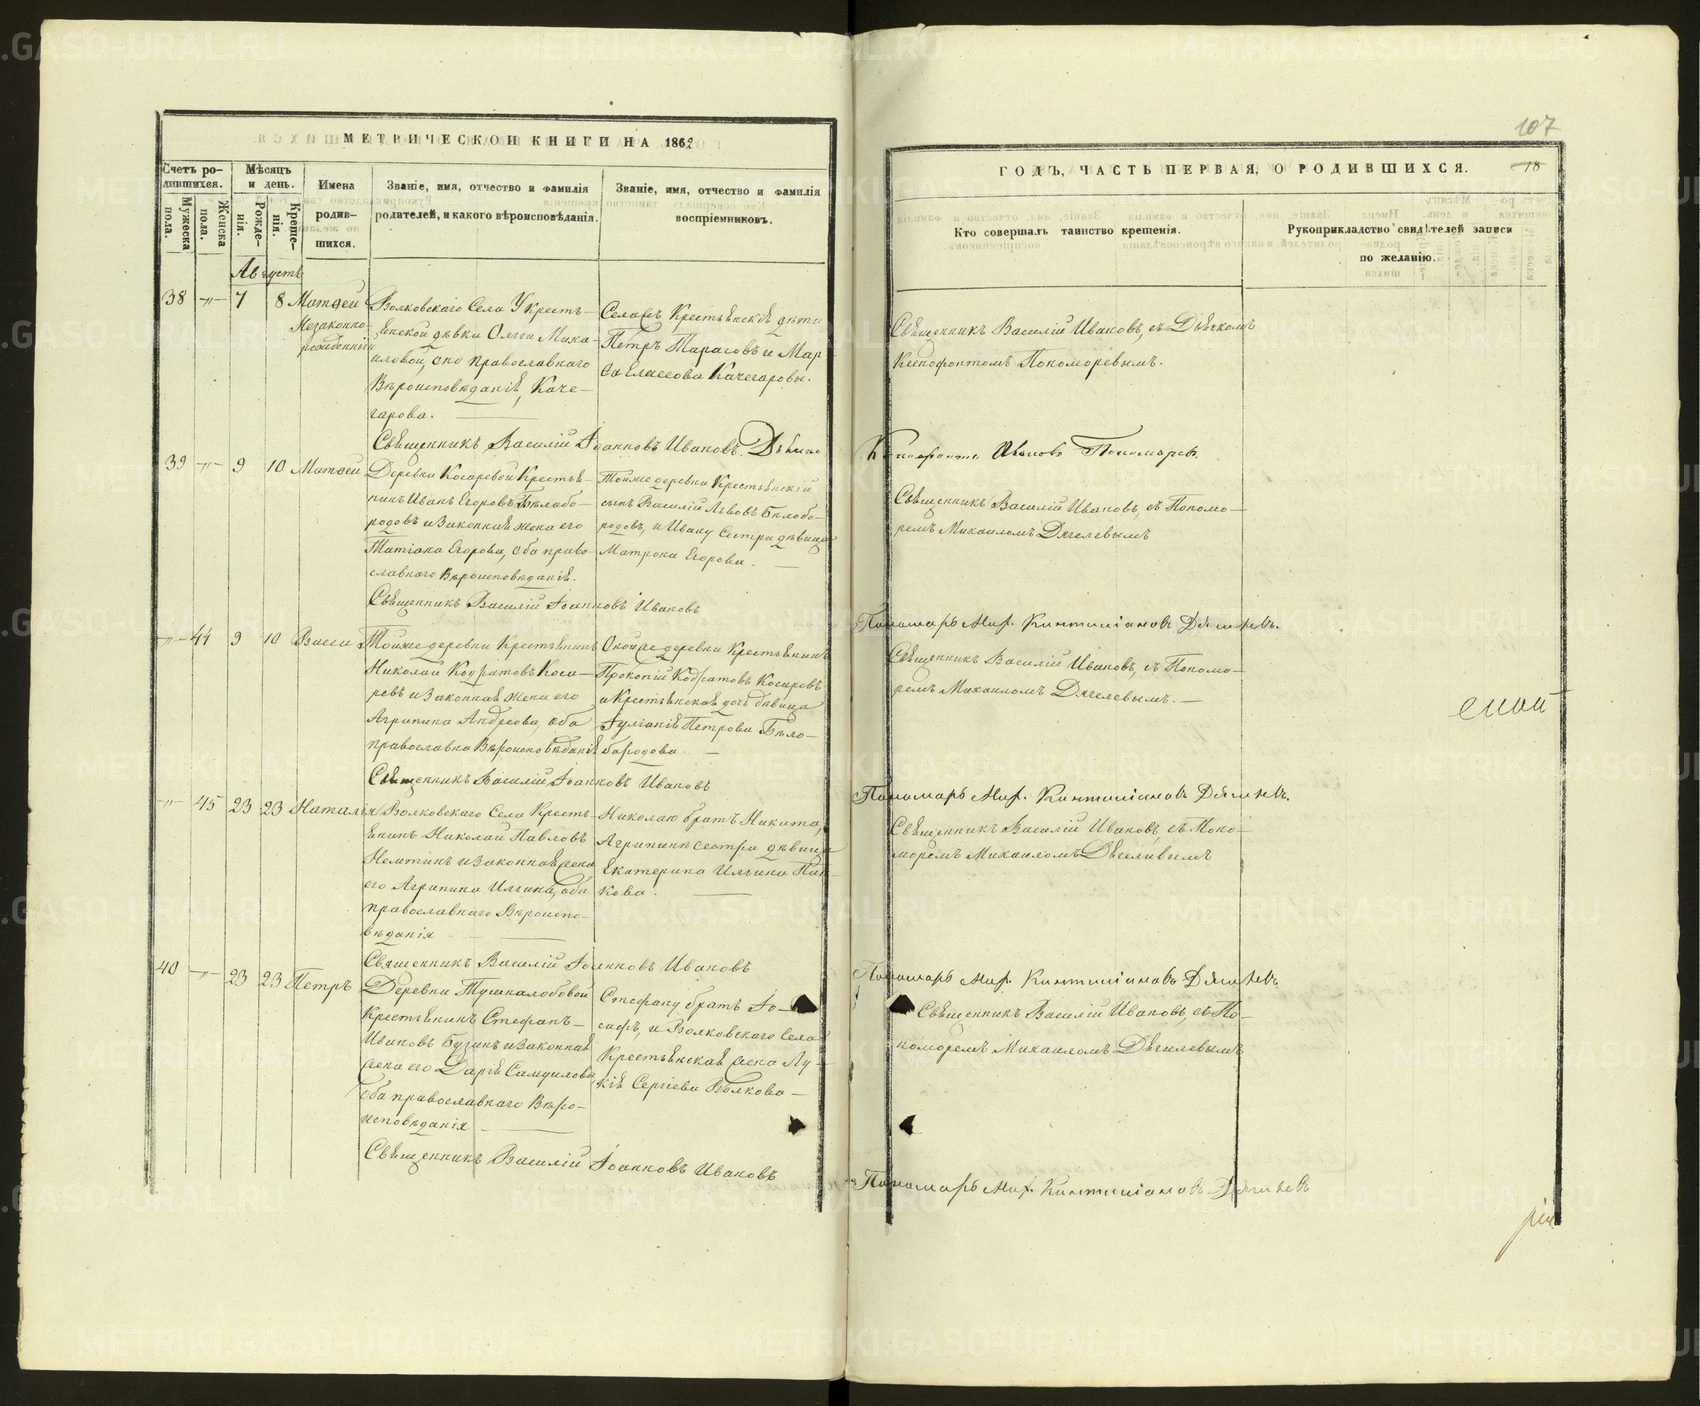 МЕТРИЧЕСКОЙ КНИГИ НА 1862
Счетъ ро-
дившихся.
Мужеска
пола.
Женска
пола.
Мѣсяцъ
и день.
Рожде-
нія.
Креще-
нія.
Имена
родив-
шихся.
Званіе, имя, отчество и фамилія
родителей, и какого вѣроисповѣданія.
Званіе, имя, отчество и фамилія
воспріемниковъ.
Августъ
38 -"- 7 8 Матвей
Незаконно-
рожденный
Волковскаго Села У крестъ-
янской дѣвки Ольги Миха-
иловой, она православнаго
Вѣроисповѣданія, Каче-
гарова.
Крестьянскія дѣти
Петръ Тарасовъ и Мар
Качегаровы.
Священникъ Василій Іоанновъ Ивановъ.
39 -"- 9 10 Матвей
Деревни Косаревой Крестья-
нинъ Иванъ Егоровъ Бѣлобо-
родовъ и Законная жена его
Татіана Егорова, оба право-
славнаго Вѣроисповѣданія.
Тойже деревни Крестьянскій
сынъ Василій Львовъ Бѣлобо-
родовъ, и Ивану Сестра дѣвица
Матрона Егорова.
Священникъ Василій Іоанновъ Ивановъ
-"- 44 9 10 Васса
Тойже деревни Крестьянинъ
Николай Кодратовъ Коса-
ревъ и Законная жена его
Агрипина Андреева, оба
православна Вѣроисповѣданія
Оной же деревни Крестьянинъ
Прокопій Кодратовъ Косаревъ
и Крестьянская дочь дѣвица
Іуліанія Петрова Бѣло-
бородова.
Священникъ Василій Іоанновъ Ивановъ
-"- 45 23 23 Наталія
Волковскаго Села Кресть-
янинъ Николай Павловъ
и Законная жена
его Агрипина Ильина, оба
православнаго Вѣроиспо-
вѣданія
Николаю братъ Никита,
Агрипинѣ сестра дѣвица
Екатерина Ильина Пан
кова.
Священникъ Василій Іоанновъ Ивановъ
40 -"- 23 23 Петръ
Деревни Тушналобовой
Крестьянинъ Стефанъ
Ивановъ Бузинъ и Законная
жена его Дарія Самуилова
оба православнаго Вѣро-
исповѣданія
Стефану братъ Іо-
сифъ, и Волковскаго Села
Крестьянская жена Лу-
кія Сергіева Волкова
Священникъ Василій Іоанновъ Ивановъ
107
18
ГОДЪ, ЧАСТЬ ПЕРВАЯ, О РОДИВШИХСЯ.
Кто совершалъ таинство крещенія.
Рукоприкладство свидѣтелей записи
по желанію.
Священникъ Василій Ивановъ, съ Дьячкомъ
Ксенофонтомъ Пономоревымъ.
Ксенофонтъ Ивановъ Пономаревъ.
Священникъ Василій Ивановъ, съ Пономо-
ремъ Михаиломъ Дягелевымъ
Пономарь Мих. Кинтиліановъ Дягилевъ.
Священникъ Василій Ивановъ, съ Пономо-
ремъ Михаиломъ Дягелевымъ.
Пономарь Мих. Кинтиліановъ Дягилевъ.
Священникъ Василій Ивановъ, съ Поно-
моремъ Михаиломъ Дягеливымъ
Пономарь Мих. Кинтиліановъ Дягилевъ
Священникъ Василій Ивановъ, съ По-
номоремъ Михаиломъ Дягилевымъ
Пономарь Мих. Кинтиліановъ Дягилевъ
METRIKI.GASO-URAL.RU